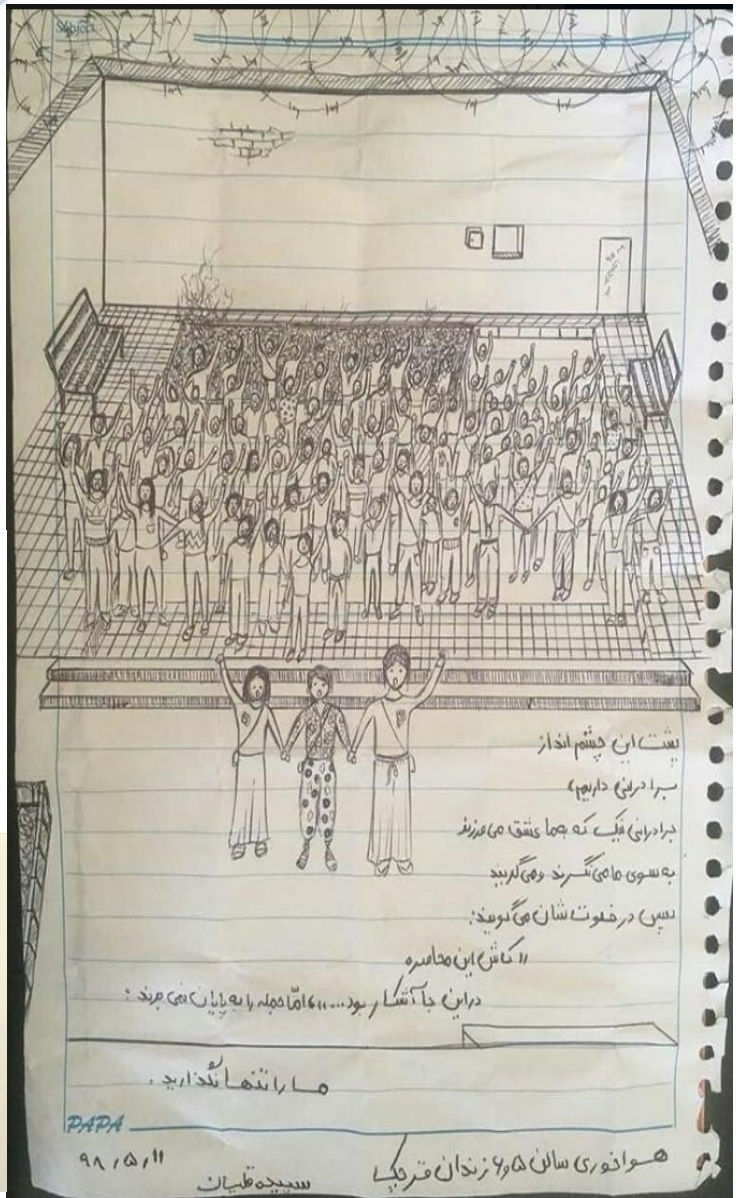 Subject:
پشت این چشم انداز
برادرانی داریم،
برادرانی نیک که به ما عشق می ورزند
به سوی ما می نگرند و می گریند
سپس در خلوت شان می گویند:
"کاش این محاصره
در این جا آشکار بود...." اما جمله را به پایان نمی برند:
ما را تنها نگذارید.
PAPA
هواخوری سالن ۵ و ۶ زندان قرچک
سپیده قلیان
۹۸/۵/۱۱